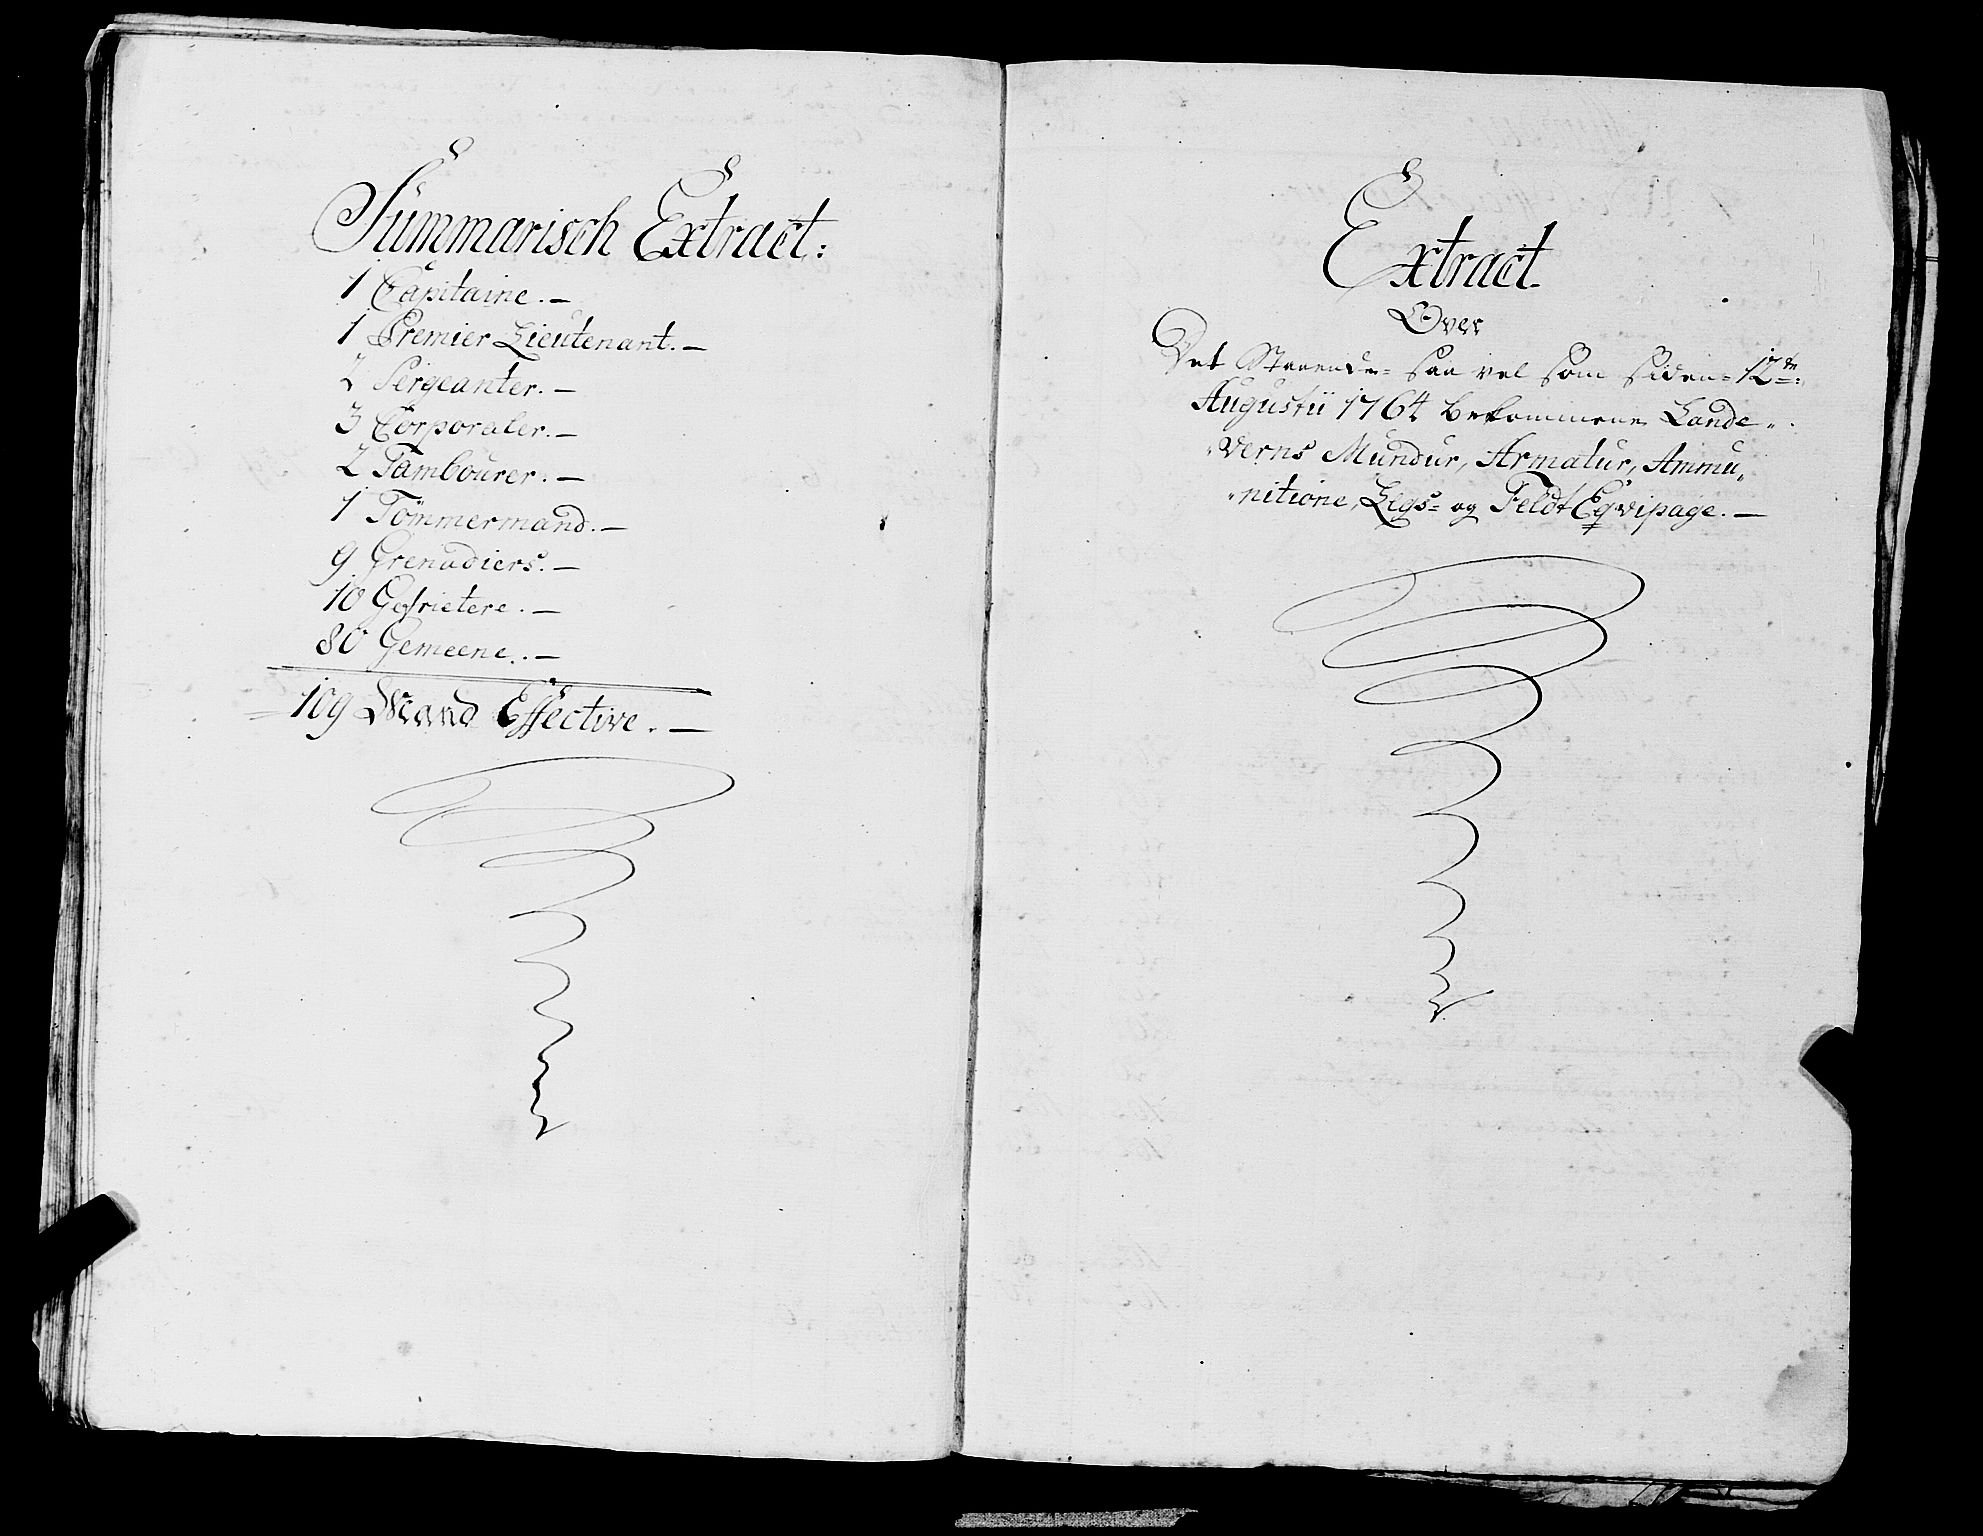 Summarisch Extract:
1 Capitaine. —
1 Premier Lieutenant. —
2 Sergeanter. —
3 Corporaler. —
2 Tambourer. —
1 Tømmermand. —
9 Grenadiers. —
10 Gefrietere. —
80 Gemeene. . —
109 Mand Effective. —
Extract
Over
Det Staaende- saa vel som siden- 12te:
Augustii 1764 bekommene Lande-
Verns Mundur, Armatur, Ammu-
nitione, Legs- og Feldt Eqvipage. —